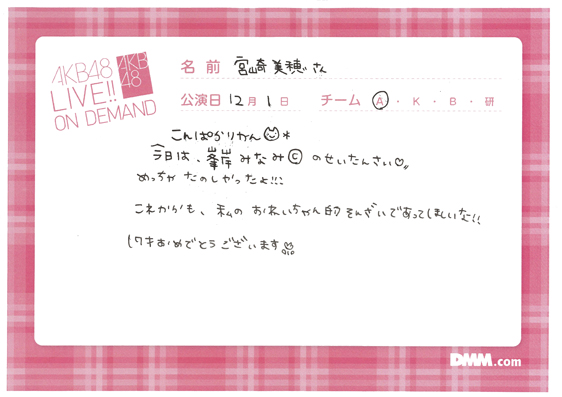 AKB48
LIVE!!
ON DEMAND
AKB
48
名前 宮崎美穂さん
公演日 12月1日 チーム A・K・B・研
こんばかりかん
今日は、峯岸みなみⒸのせいたんさい♡
めっちゃたのしかったよ!!!
これからも、私のおねいちゃん的そんざいであってほしいな!!
17才おめでとうございます
DMM.com